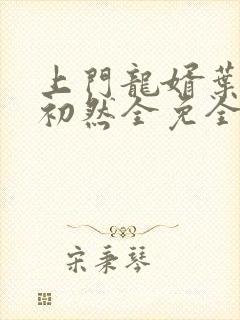 上門龍婿葉
初然全免全
宋秉琴